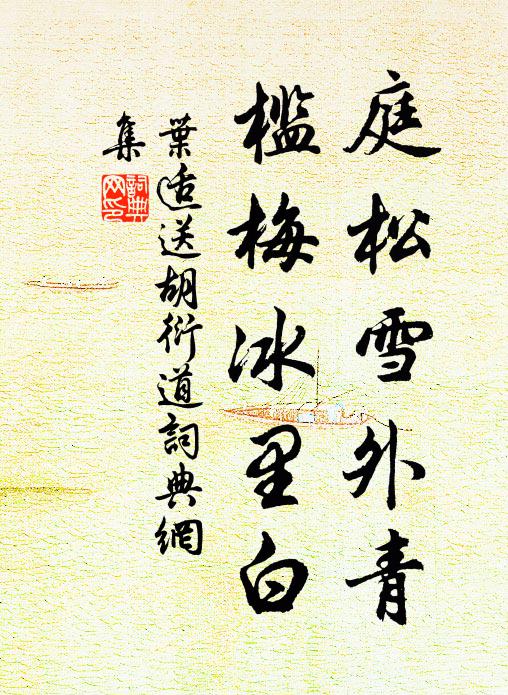 庭松雪外青
檻梅冰里白
葉适送胡衍道詞典網
集
詞典网印